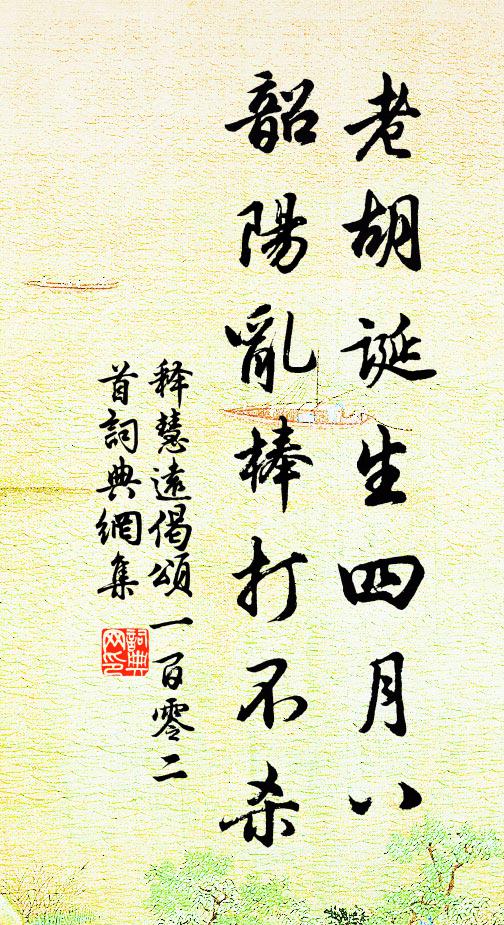 老胡誕生四月八
韶陽亂棒打不杀
释慧遠偈頌一百零二
首詞典網集
詞典
网印